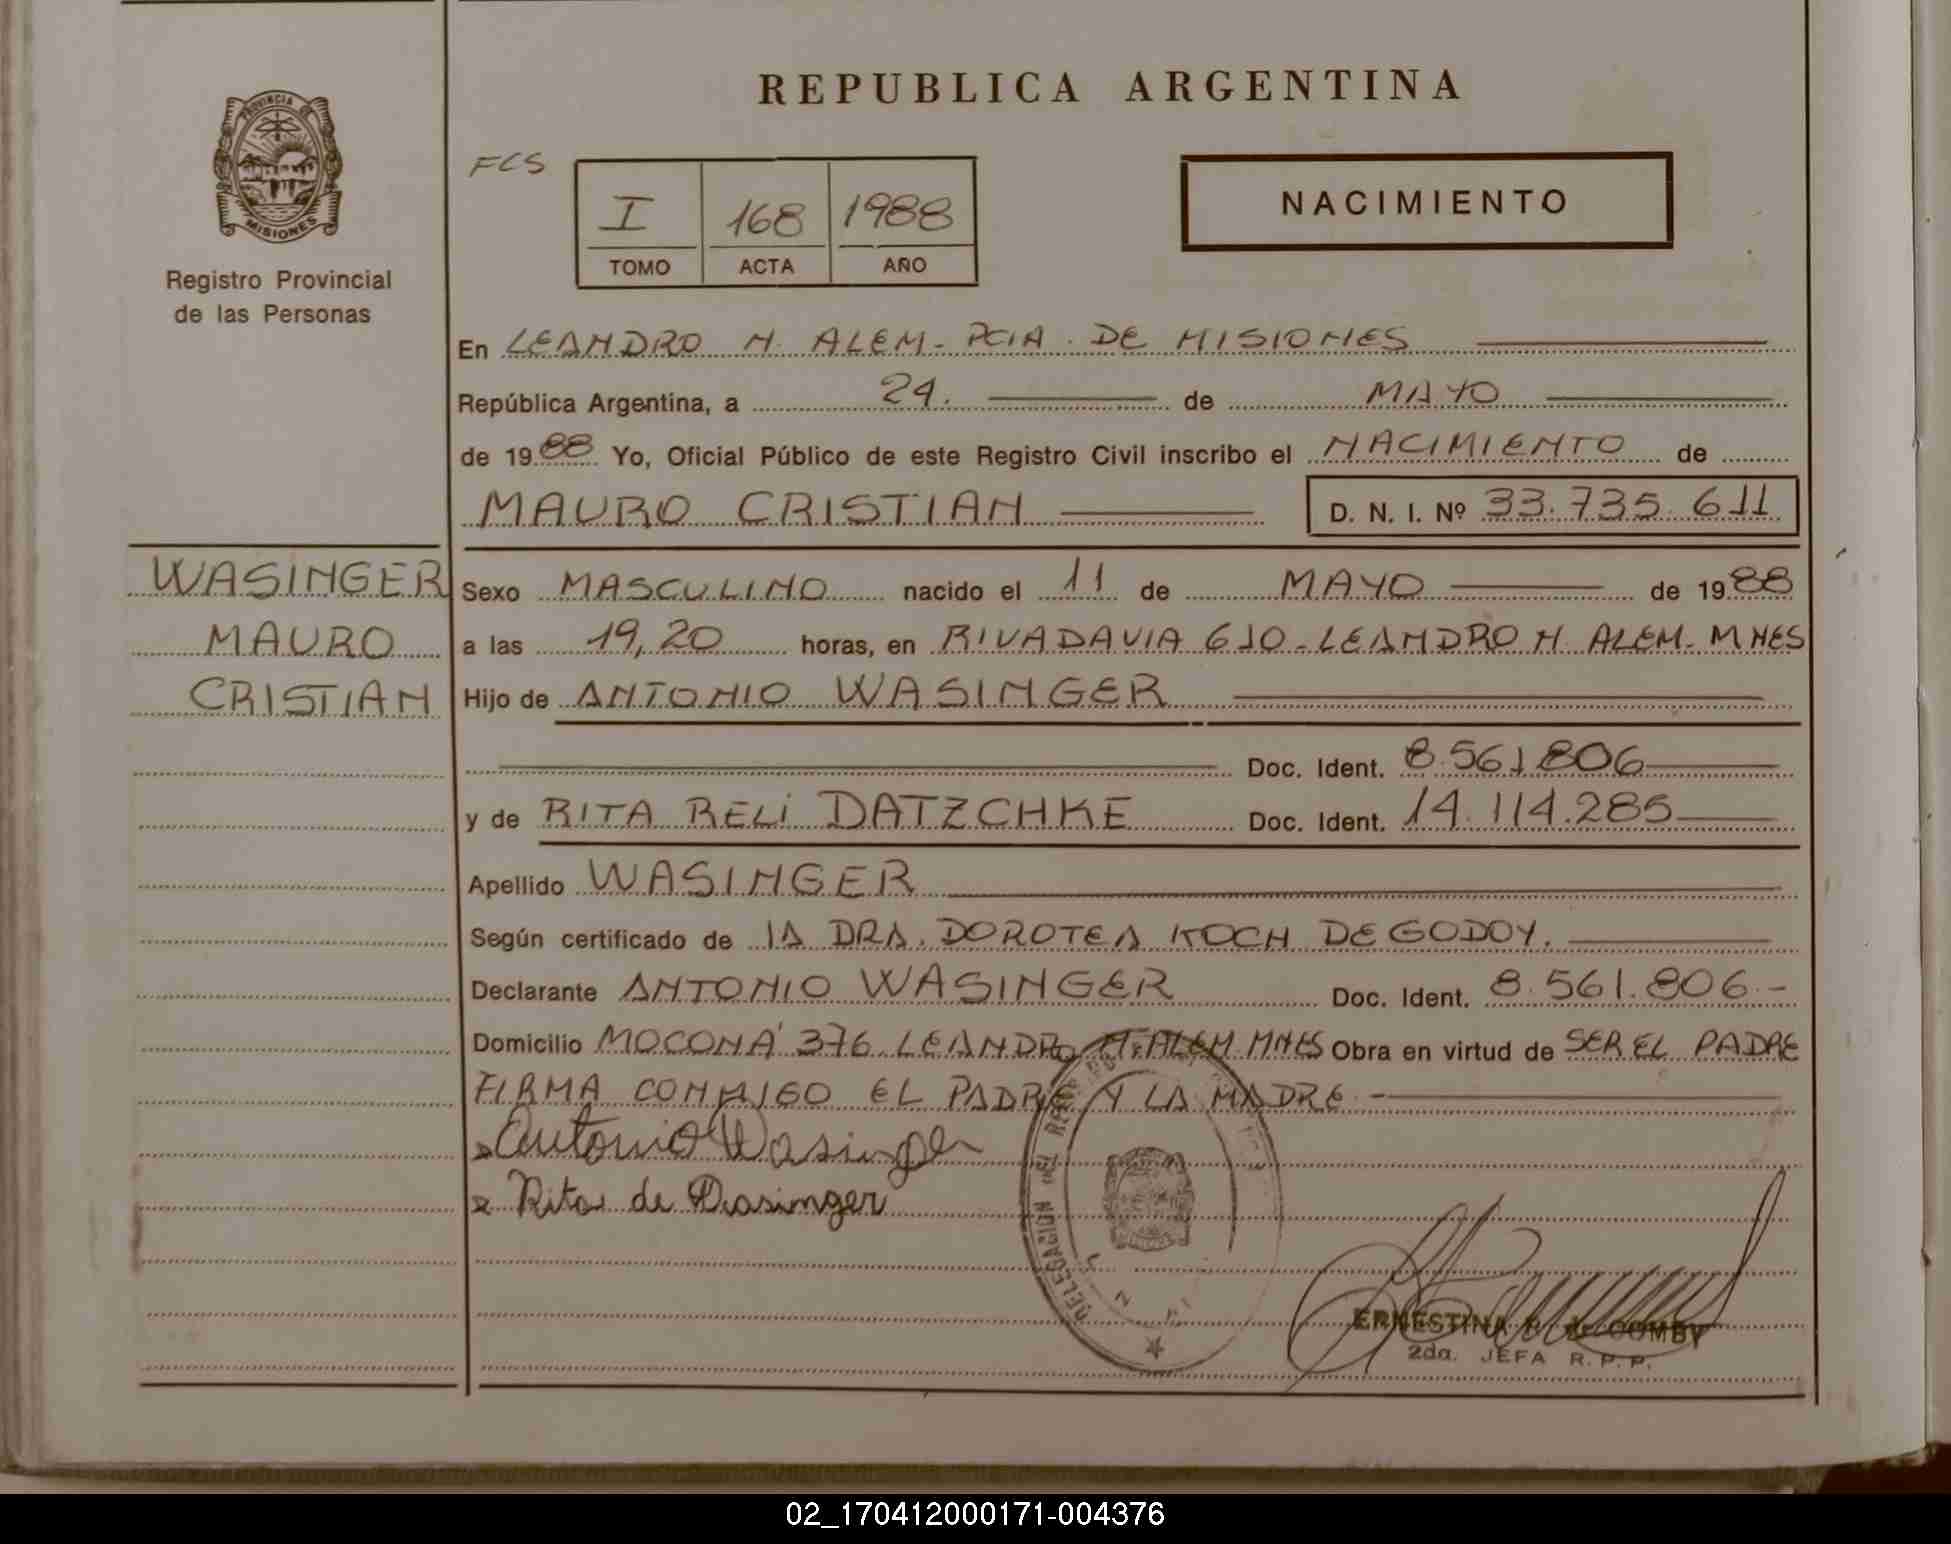 PROVINCIA DE
MISIONES
Registro Provincial
de las Personas
REPUBLICA ARGENTINA
FCS
I 168 1988
TOMO ACTA AÑO
NACIMIENTO
En LEANDRO N. ALEM - PCIA. DE MISIONES
República Argentina, a 24. de MAYO
de 1988 Yo, Oficial Público de este Registro Civil inscribo el NACIMIENTO de
MAURO CRISTIAN D. N. I. Nº 33.735.611
WASINGER
MAURO
CRISTIAN
Sexo MASCULINO nacido el 11 de MAYO de 1988
a las 19,20 horas, en RIVADAVIA 610 - LEANDRO N. ALEM - MNES
Hijo de ANTONIO WASINGER
Doc. Ident. 8.561.806
y de RITA RELI DATZCHKE Doc. Ident. 14.114.285
Apellido WASINGER
Según certificado de LA DRA. DOROTEA KOCH DE GODOY.
Declarante ANTONIO WASINGER Doc. Ident. 8.561.806.-
Domicilio MOCONÁ 376 LEANDRO N. ALEM MNES Obra en virtud de SER EL PADRE
FIRMA CONMIGO EL PADRE Y LA MADRE -
x Antonio Wasinger
x Rita de Wasinger
DELEGACION DEL
ERNESTINA de COMBY
2da. JEFA R.P.P.
02_170412000171-004376